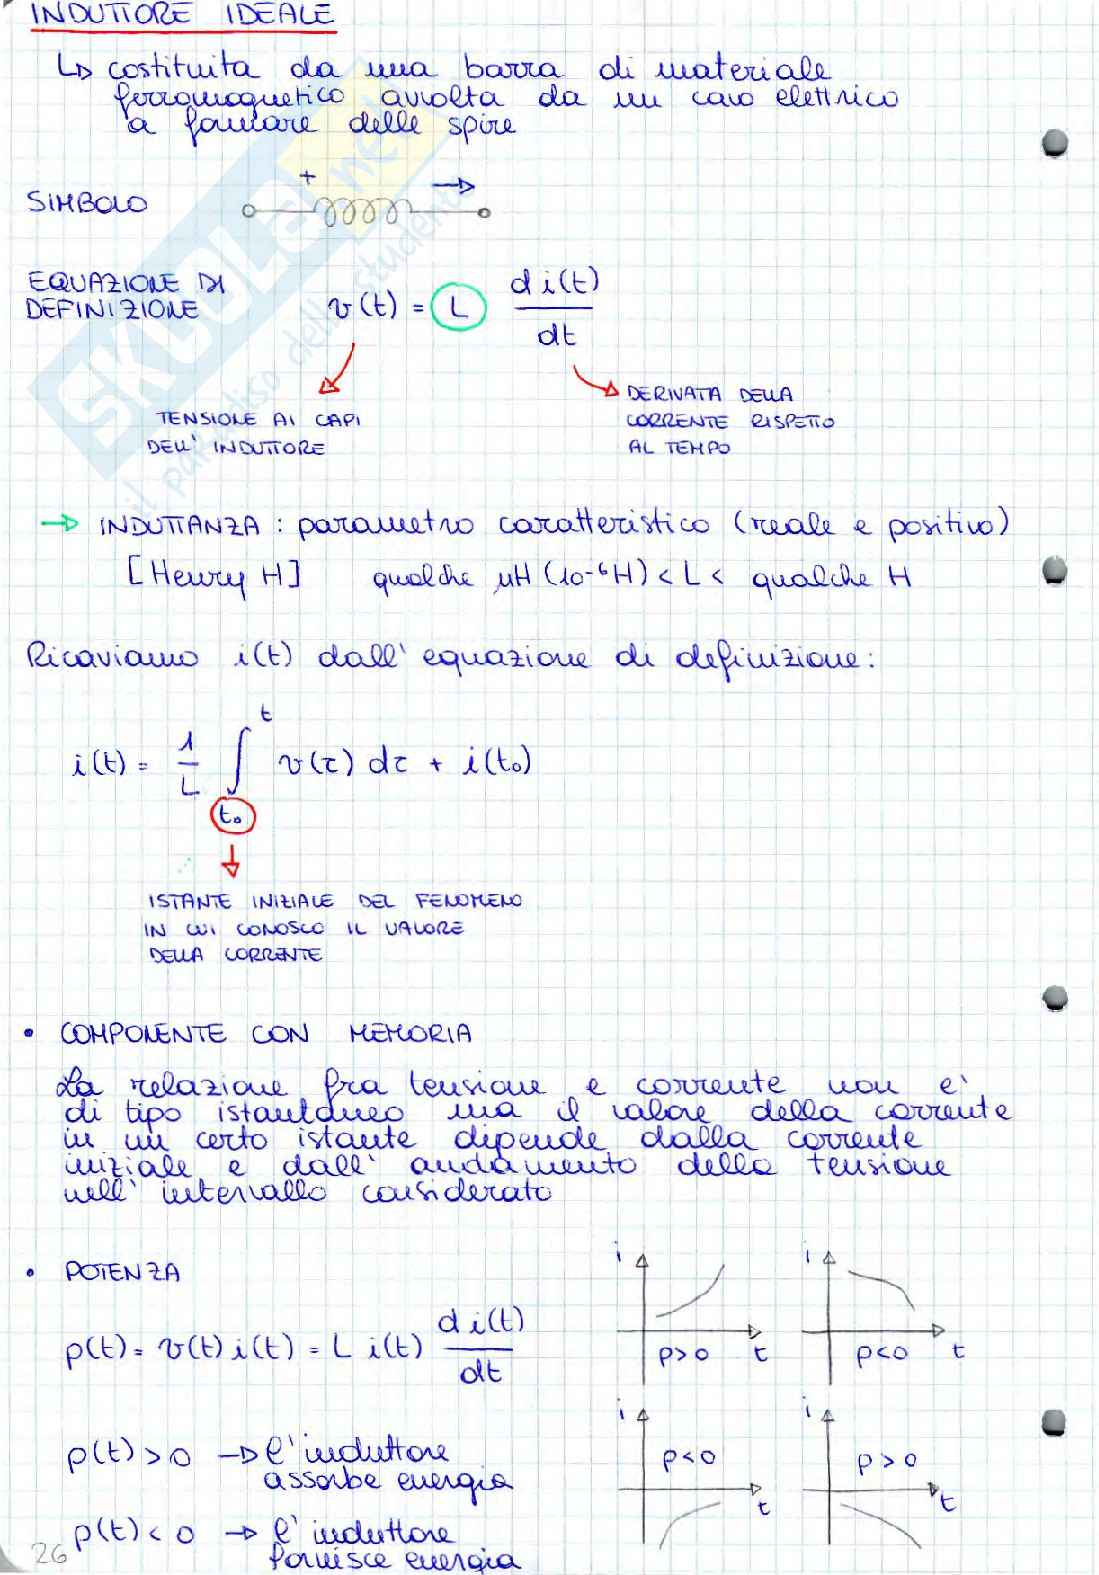 INDUTTORE IDEALE
↳ costituita da una barra di materiale
ferromagnetico avvolta da un cavo elettrico
a formare delle spire
SIMBOLO
+ →
EQUAZIONE DI
DEFINIZIONE
v(t) = L d i(t) / dt
TENSIONE AI CAPI
DELL' INDUTTORE
DERIVATA DELLA
CORRENTE RISPETTO
AL TEMPO
→ INDUTTANZA : parametro caratteristico (reale e positivo)
[Henry H] qualche μH (10⁻⁶H) < L < qualche H
Ricaviamo i(t) dall' equazione di definizione:
i(t) = 1/L ∫ t₀ t v(τ) dτ + i(t₀)
ISTANTE INIZIALE DEL FENOMENO
IN CUI CONOSCO IL VALORE
DELLA CORRENTE
• COMPONENTE CON MEMORIA
La relazione fra tensione e corrente non e'
di tipo istantaneo ma il valore della corrente
in un certo istante dipende dalla corrente
iniziale e dall' andamento della tensione
nell' intervallo considerato
• POTENZA
p(t) = v(t) i(t) = L i(t) d i(t) / dt
p(t) > 0 → l' induttore
assorbe energia
p(t) < 0 → l' induttore
fornisce energia
i
p>0 t
i
p<0 t
i
p<0
t
i
p>0
t
26
SKUOLA.net
il paradiso dello studente